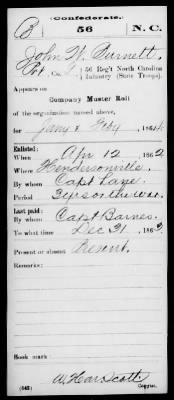 (Confederate.)
B 56 N. C.
John W. Burnett
Pvt, Co. 56 Reg't North Carolina
Infantry (State Troops).
Appears on
Company Muster Roll
of the organization named above,
for Jany & Feby, 1864.
Enlisted:
When Apr 12, 1862
Where Hendersonville
By whom Capt Lane
Period 3 yrs or the war
Last paid:
By whom Capt Barnes
To what time Dec 31, 1863
Present or absent Present
Remarks:
Book mark:
(642) Copyist.